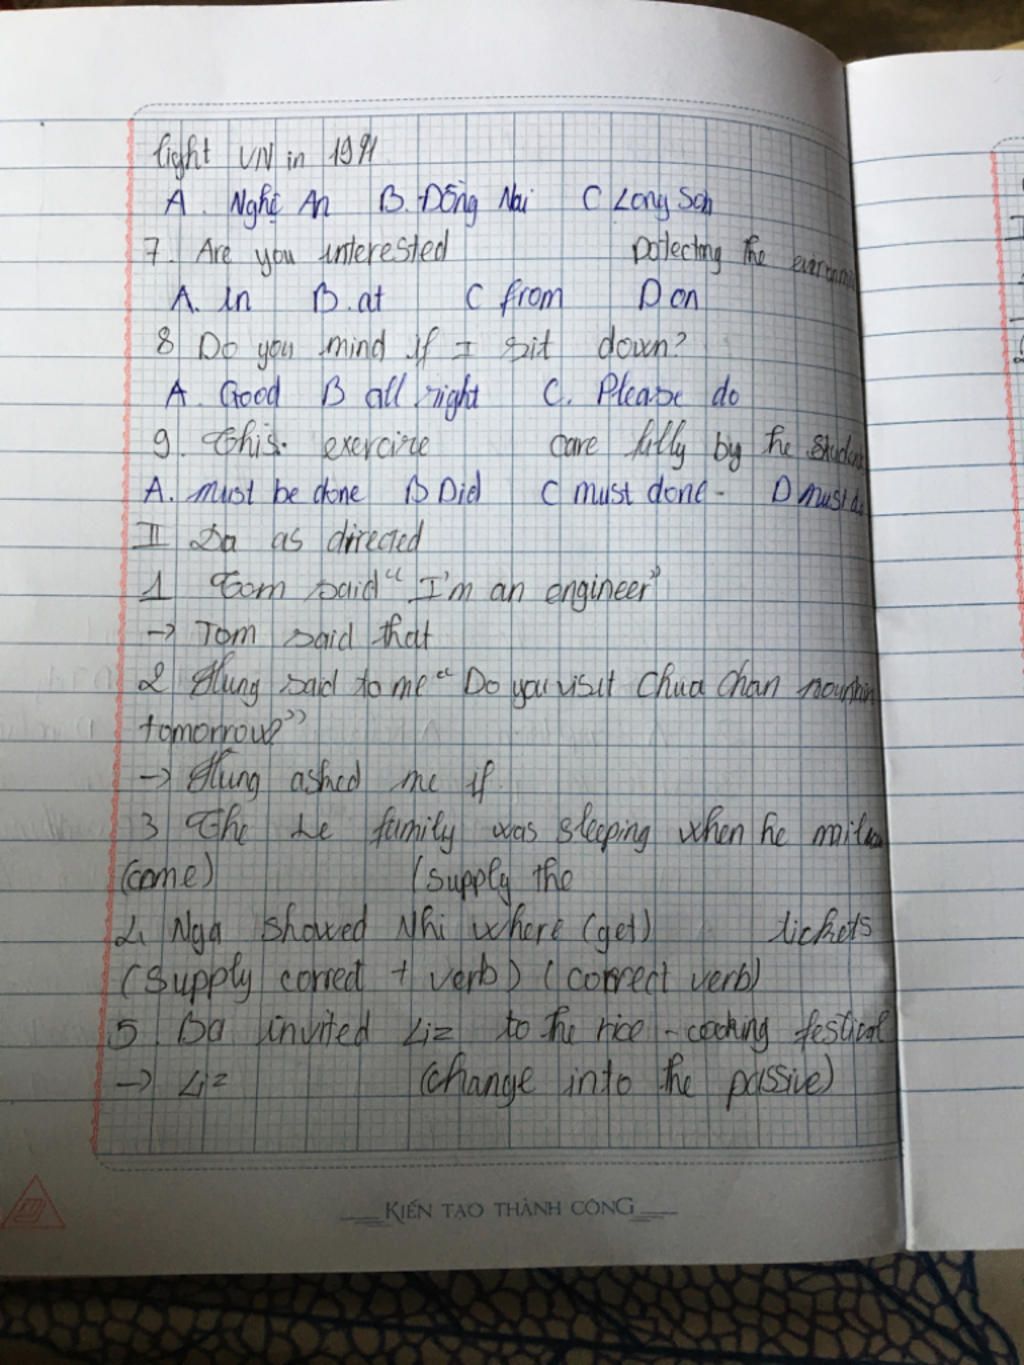 light VN in 1991
A. Nghệ An B. Đồng Nai C Long Sơn
7. Are you interested potecting the
A. in B. at C from D on
8 Do you mind if I sit down?
A. Good B all right C. Please do
9. This exercire care fully by the
A. must be done B Did C must done - D must
II Da as directed
1 Tom said "I'm an engineer"
-> Tom said that
2 Hung said to me "Do you visit Chua Chan
tomorrow?"
-> Hung asked me if
3 The Le family was sleeping when he
(come) (supply the
4 Nga showed Nhi where (get) tickets
(supply correct + verb) (correct verb)
5. Ba invited Liz to the rice-cooking festival
-> Liz (change into the passive)
KIẾN TẠO THÀNH CÔNG